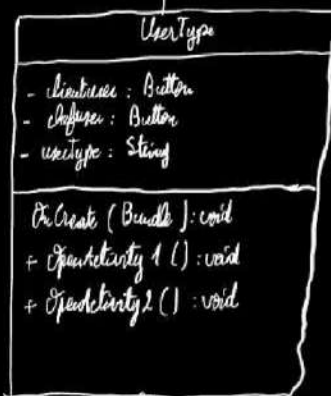 UserType
- clientuser : Button
- chefuser : Button
- userType : String
OnCreate (Bundle) : void
+ OpenActivity 1 () : void
+ OpenActivity 2 () : void